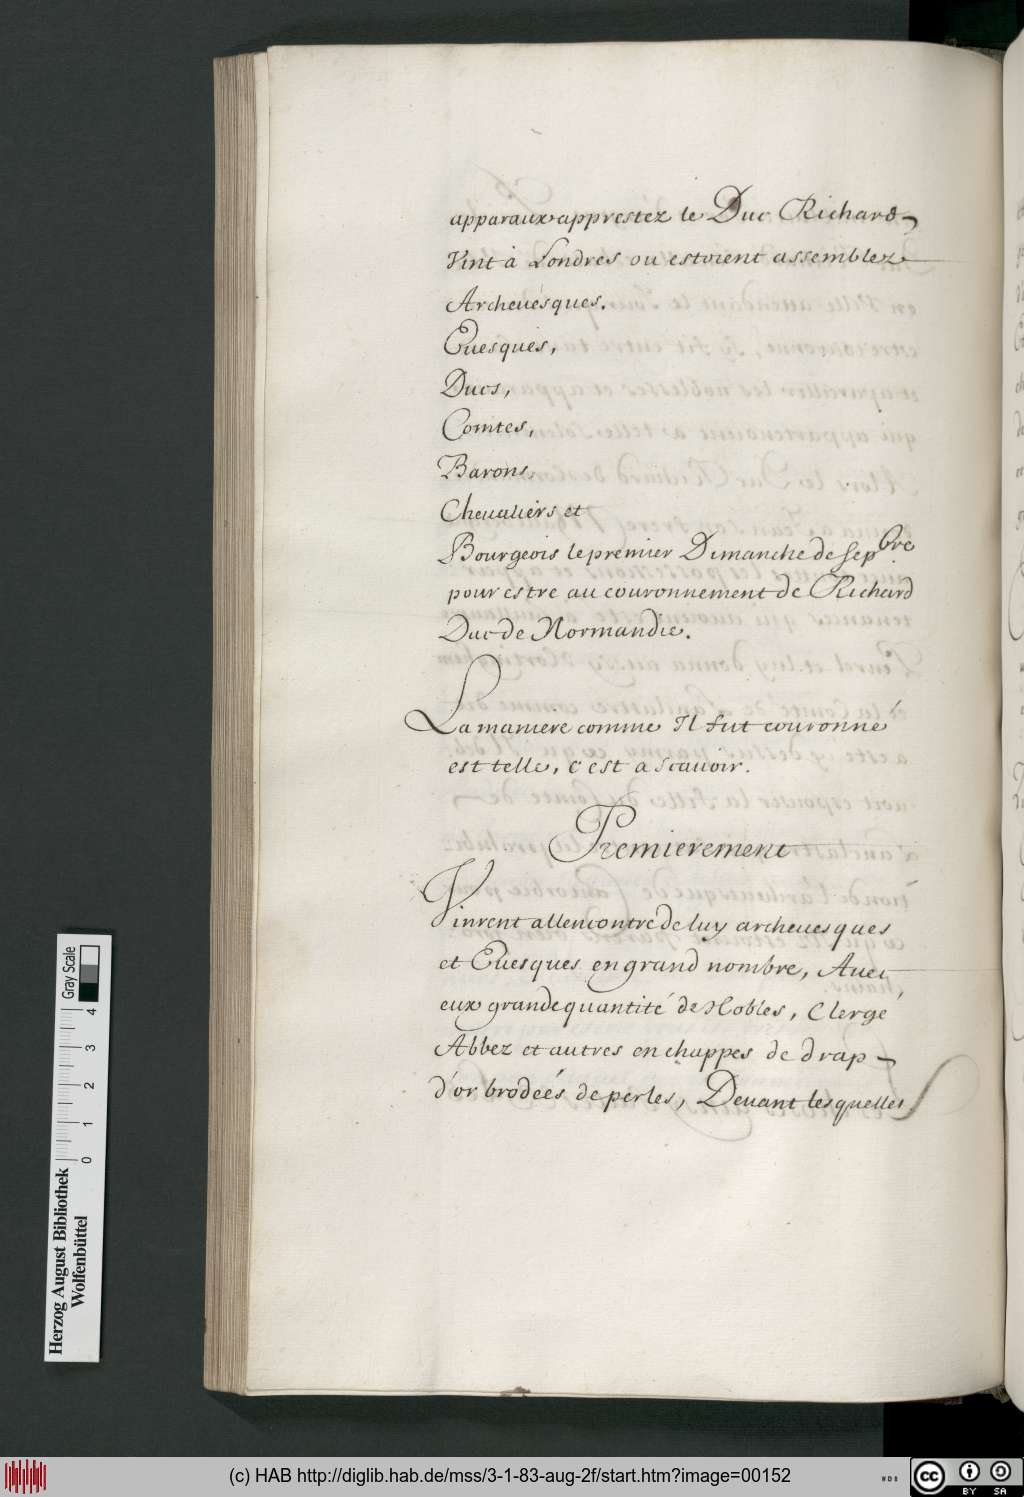 apparaux apprestez le Duc Richard
Vint à Londres ou estoient assemblez
Archeuésques.
Euesques,
Ducs,
Comtes,
Barons,
Cheualiers et
Bourgeois le premier Dimanche de Sepbre.
pour estre au couronnement de Richard
Duc de Normandie.
La maniere comme Il fut couronné
est telle, c'est a scauoir.
Premierement
Vinrent allencontre de luy archeuesques
et Euesques en grand nombre, Auec
eux grande quantité de Nobles, Clergé
Abbez et autres en chappes de drap
d'or brodeés de perles, Deuant lesquelles
Herzog August Bibliothek
Wolfenbüttel
Gray Scale
0 1 2 3 4
(c) HAB http://diglib.hab.de/mss/3-1-83-aug-2f/start.htm?image=00152
WDB
cc BY SA